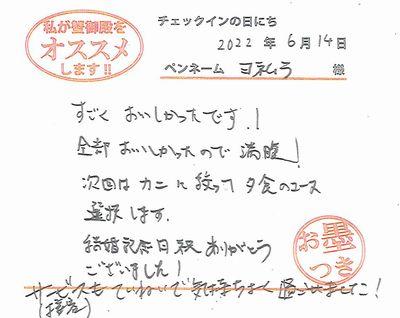 私が蟹御殿を
オススメ
します!!
チェックインの日にち
2022 年 6月 14日
ペンネーム 様
すごく おいしかったです!
全部 おいしかったので 満腹!
次回は カニに絞って 夕食のコース
選択します.
結婚記念日祝 ありがとう
ございました!
サービスも ていねいで 気持ちよく 過ごせました!
(接客)
お墨
つき